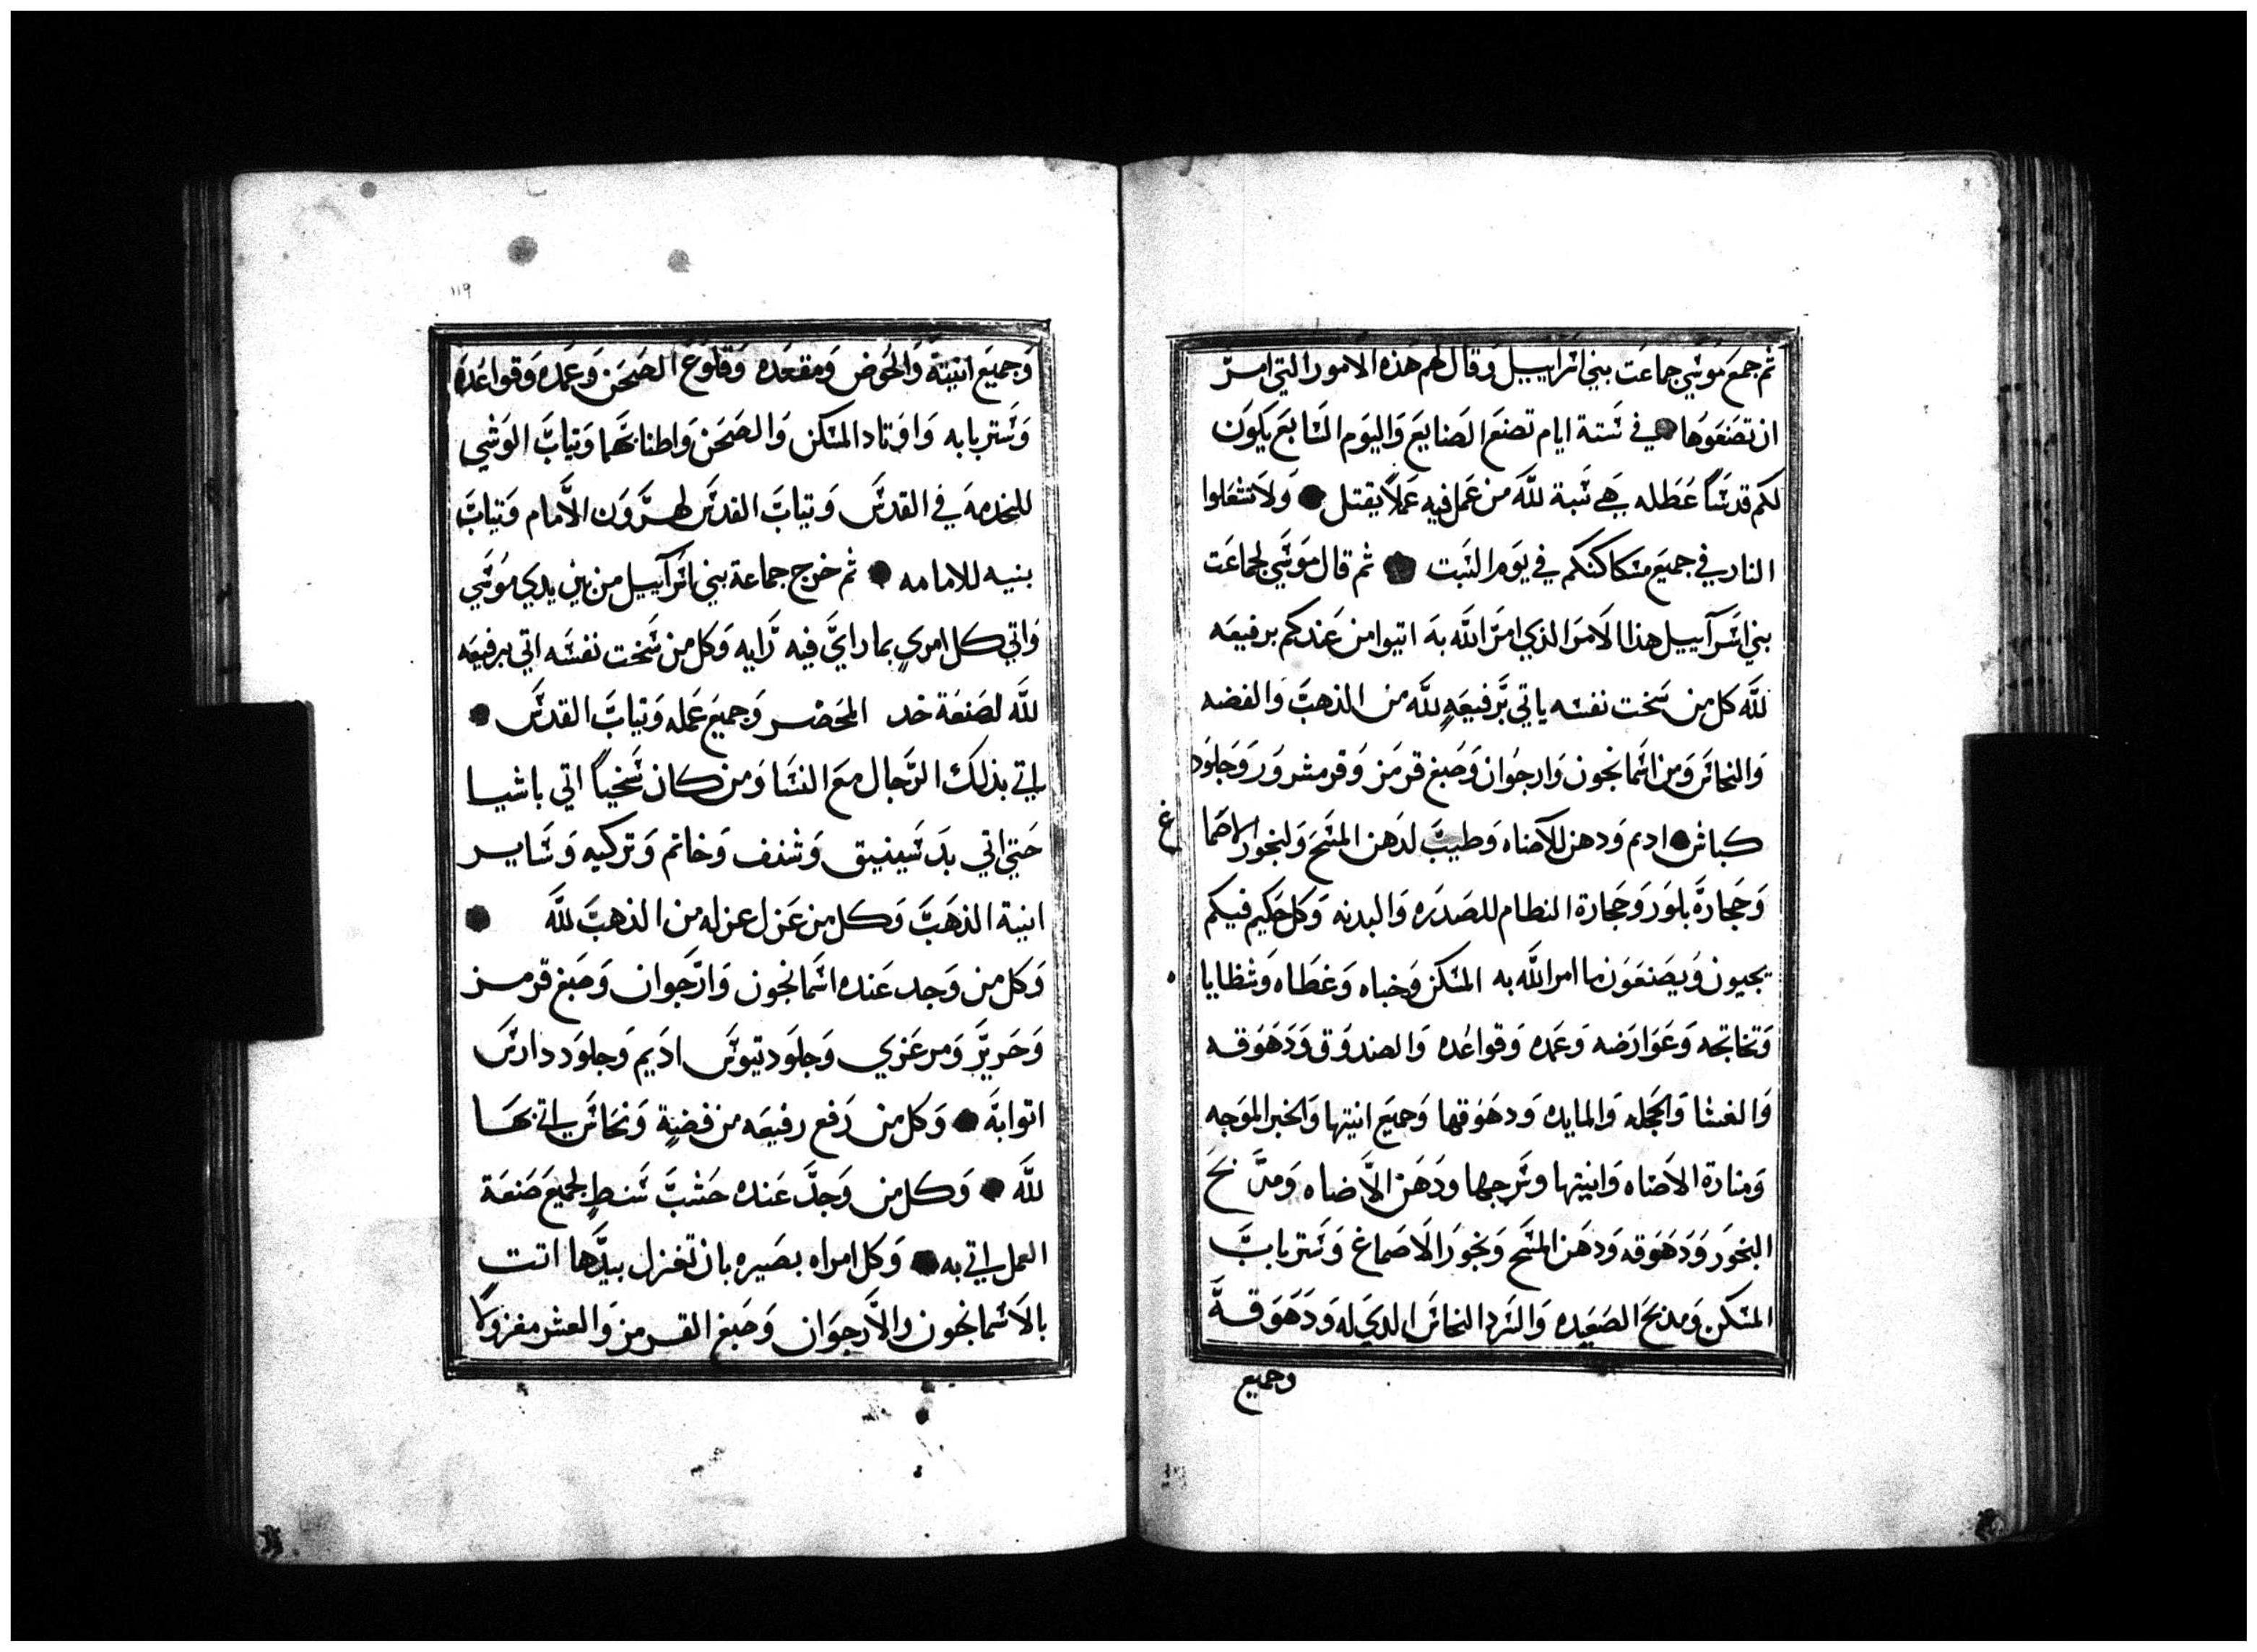 ثم جمع موسي جماعت بني اسراييل وقال لهم هذه الامور التي امر
ان تصنعوها في ستة ايام تصنع الصنايع واليوم السابع يكون
لكم قدسا عطله هي سبة لله من عمل فيه عملا يقتل ولا تشعلوا
النار في جميع مساكنكم في يوم السبت ثم قال موسي لجماعت
بني اسرآييل هذا الامر الذي امر الله به اتيوا من عندكم برفيعه
لله كل من سخت نفسه ياتي برفيعه لله من الذهب والفضه
والنحاس ومن اسمانجون وارجوان وصبغ قرمز وقر مشرور وجلود
كباش اديم ودهن للاضاه وطيب لدهن المسح ولبخور الاصما
غ
وحجارة بلور وحجارة النظام للصدره والبدنه وكل حكيم فيكم
يجيون ويصنعون ما امر الله به المسكن وخباه وغطاه وشظايا
ه
وتخاتجه وعوارضه وعمده وقواعده والصندوق ودهوقه
والغشا والحجله والمايده ودهوقها وجميع انيتها والخبر الموجه
ومنارة الاضاه وانيتها وسرجها ودهن الاضاه ومدبح
البخور ودهوقه ودهن المسح وبخور الاصماغ وستر باب
المسكن ومدبح الصعيده والسرد النحاس الدي له ودهوقه
وجميع
١١٩
وجميع انيته والحوض ومقعده وقلوع الصحن وعمده وقواعده
وستر بابه واوتاد المسكن والصحن واطنابهما وتياب الوشي
للخدمه في القدس وتياب القدس لهرون الامام وتياب
بنيه للامامه ثم خرج جماعة بني اسرآييل من بين يدي موسي
واتي كل امري بما راي فيه رايه وكل من سخت نفسه اتي برفيعه
لله لصنعة خد المحضر وجميع عمله وتياب القدس
اتي بذلك الرجال مع النسا ومن كان سخيا اتي باشيا
حتي اتي بدسينيق وشنف وخاتم وتركيه وساير
انية الذهب وكل من عزل عزله من الذهب لله
وكل من وجد عنده اسمانجون وارجوان وصبغ قرمز
وحرير ومرعزي وجلود تيوس اديم وجلود دارس
اتوا به وكل من رفع رفيعه من فضة ونحاس اتي بها
لله وكل من وجد عنده خشب سنط لجميع صنعة
العمل اتي به وكل امراه بصيره بان تغزل بيدها اتت
بالاسمانجون والارجوان وصبغ القرمز والعشر مغزولا